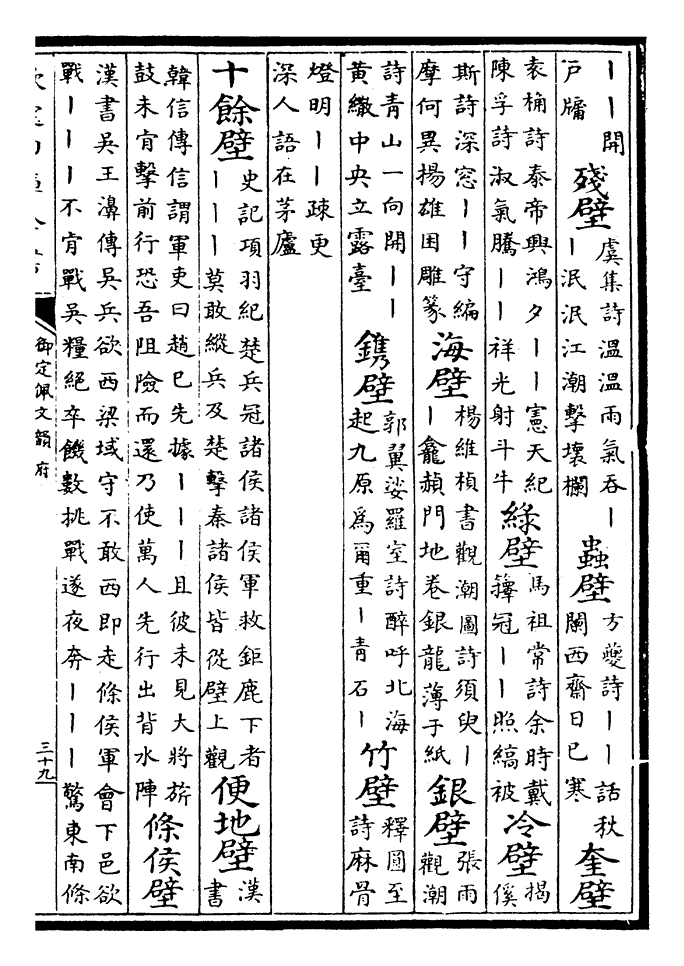 ｜｜開
戶牖
殘壁
虞集詩溫溫雨氣吞｜
｜泯泯江潮擊壞欄
蟲壁
方夔詩｜｜話秋
闌西齋日已寒
奎壁
袁桷詩泰帝興鴻夕｜｜憲天紀
陳孚詩淑氣騰｜｜祥光射斗牛
綠壁
馬祖常詩余時戴
籜冠｜｜照縞被
冷壁
揭
傒
斯詩深窓｜｜守編
摩何異揚雄困雕篆
海壁
楊維楨書觀潮圖詩須臾｜
｜龕赭門地卷銀龍薄于紙
銀壁
張雨
觀潮
詩青山一向開｜｜
黃繖中央立露臺
鐫壁
郭翼娑羅室詩醉呼北海
起九原爲爾重｜青石｜
竹壁
釋圓至
詩麻骨
燈明｜｜疎更
深人語在茅廬
十餘壁
史記項羽紀楚兵冠諸侯諸侯軍救鉅鹿下者
｜｜｜莫敢縱兵及楚擊秦諸侯皆從壁上觀
便地壁
漢
書
韓信傳信謂軍吏曰趙已先據｜｜｜且彼未見大將旂
鼓未肯擊前行恐吾阻險而還乃使萬人先行出背水陣
條侯壁
漢書吳王濞傳吳兵欲西梁城守不敢西即走條侯軍會下邑欲
戰｜｜｜不肯戰吳糧絕卒饑數挑戰遂夜奔｜｜｜驚東南條
御定佩文韻府
三十九